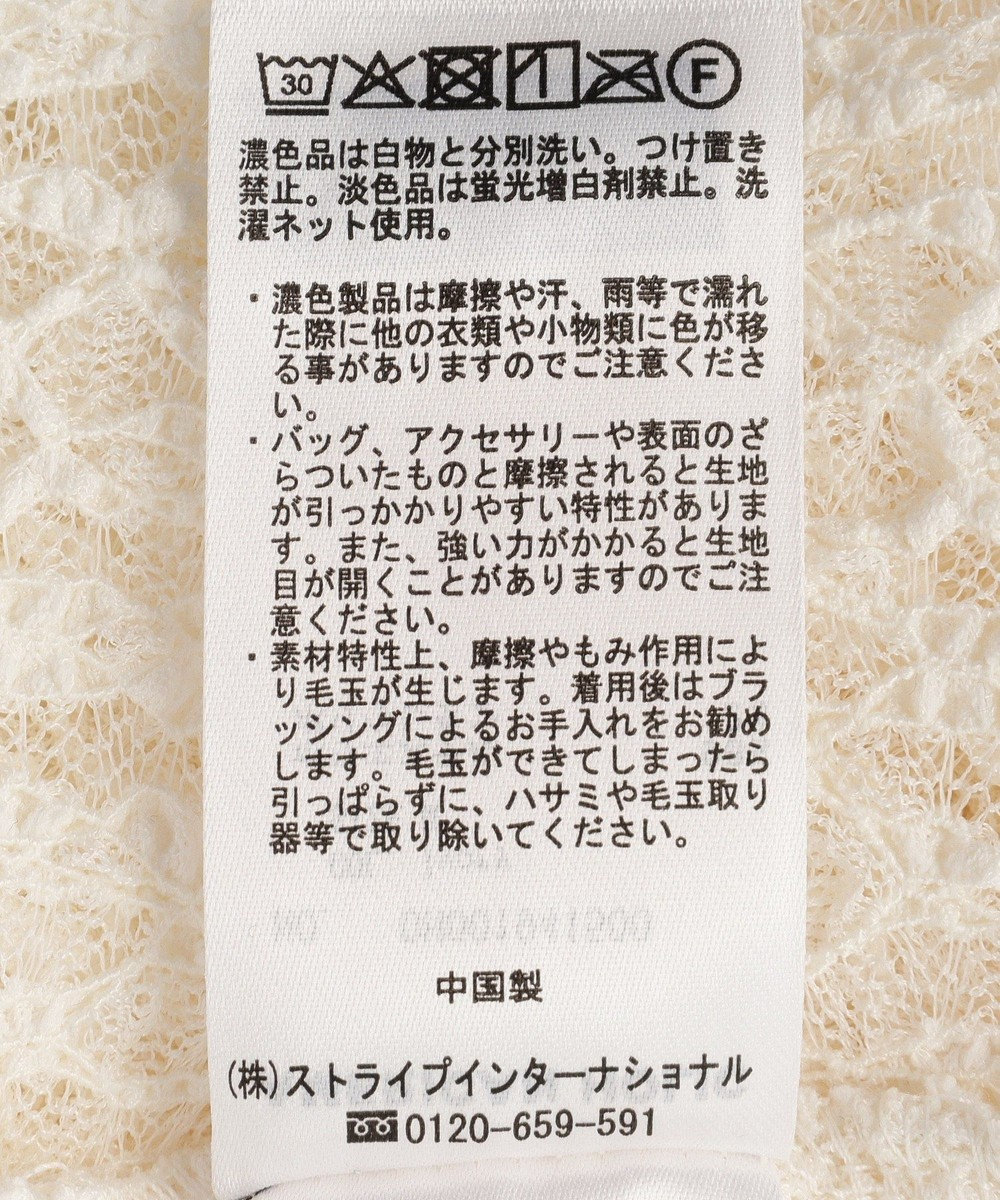 30 F
濃色品は白物と分別洗い。つけ置き
禁止。淡色品は蛍光増白剤禁止。洗
濯ネット使用。
・濃色製品は摩擦や汗、雨等で濡れ
た際に他の衣類や小物類に色が移
る事がありますのでご注意くださ
い。
・バッグ、アクセサリーや表面のざ
らついたものと摩擦されると生地
が引っかかりやすい特性がありま
す。また、強い力がかかると生地
目が開くことがありますのでご注
意ください。
・素材特性上、摩擦やもみ作用によ
り毛玉が生じます。着用後はブラ
ッシングによるお手入れをお勧め
します。毛玉ができてしまったら
引っぱらずに、ハサミや毛玉取り
器等で取り除いてください。
中国製
(株)ストライプインターナショナル
0120-659-591